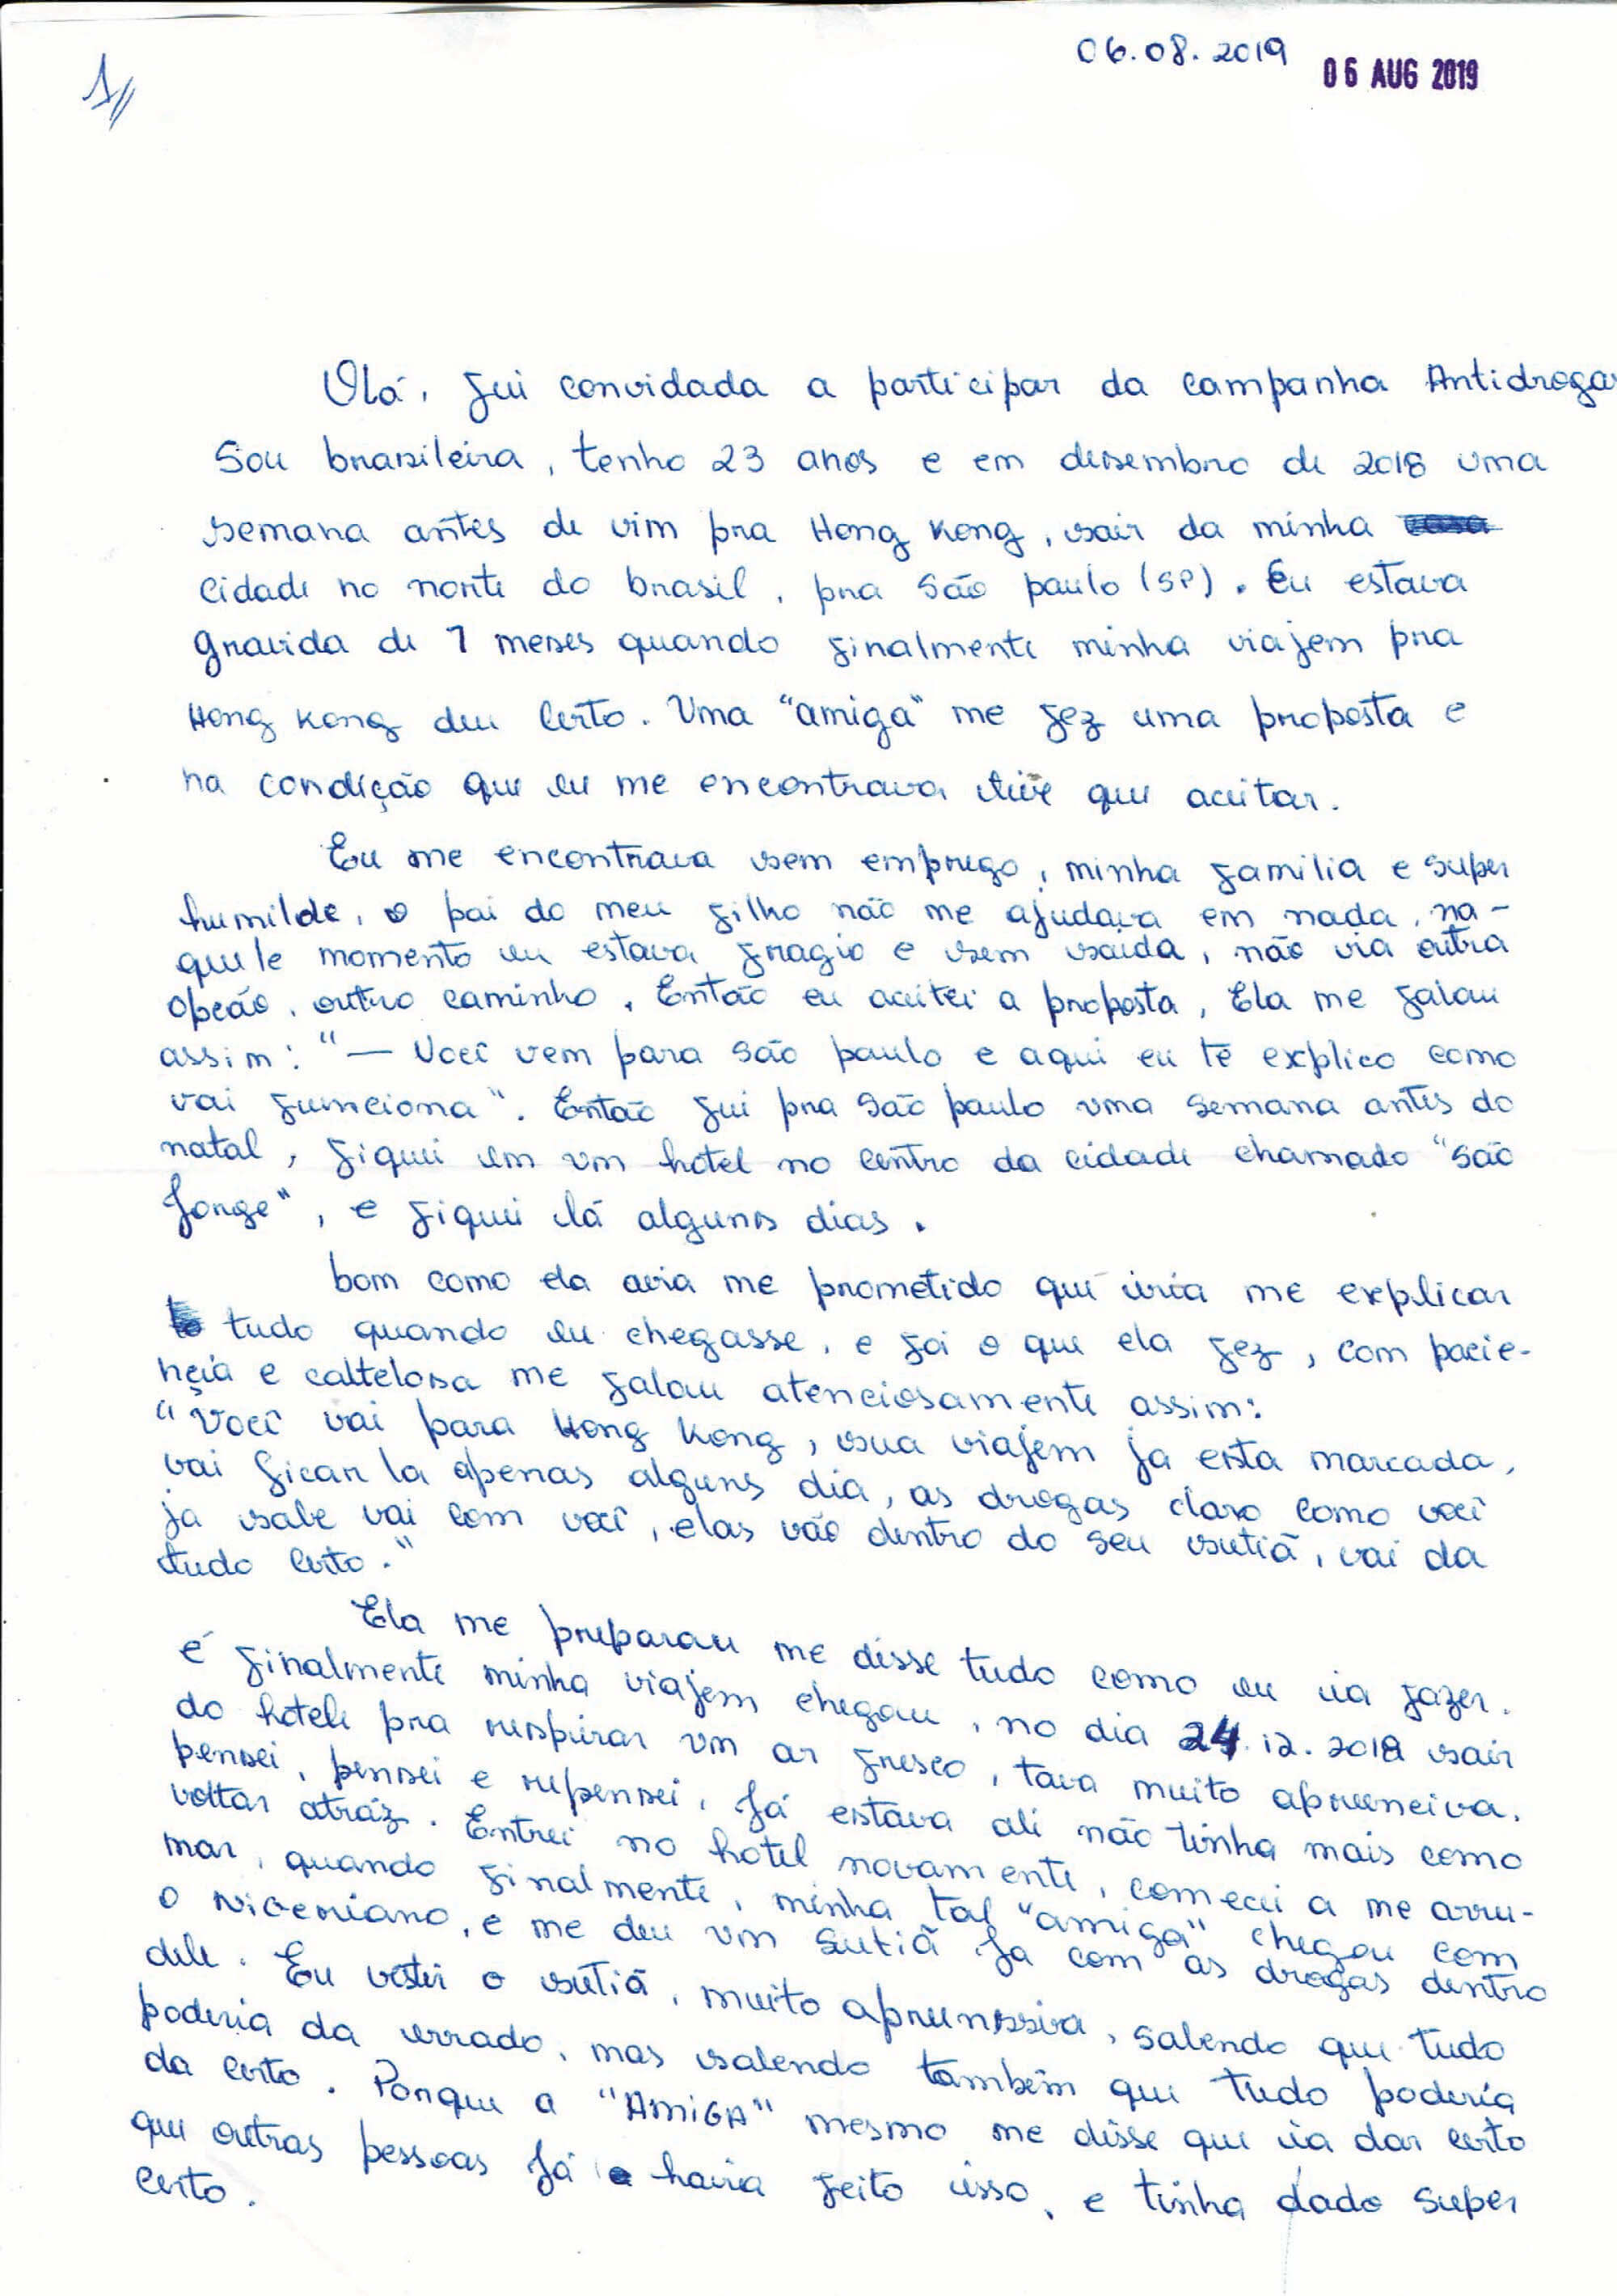 1//
06.08.2019
06 AUG 2019
Olá, fui convidada a participar da campanha Antidrogas
Sou brasileira, tenho 23 anos e em desembro de 2018 uma
semana antes de vim pra Hong Kong, sair da minha
cidade no norte do brasil, pra São paulo (SP). Eu estava
gravida de 7 meses quando finalmente minha viajem pra
Hong Kong deu certo. Uma "amiga" me fez uma proposta e
na condição que eu me encontrava tive que aceitar.
Eu me encontrava sem emprego, minha familia e super
humilde, o pai do meu filho não me ajudava em nada, na-
quele momento eu estava fragio e sem saida, não via outra
opcão, outro caminho. Então eu aceitei a proposta, Ela me falou
assim: "— Você vem para São paulo e aqui eu te explico como
vai funciona". Então fui pra São paulo uma semana antes do
natal, fiquei em um hotel no centro da cidade chamado "São
Jorge", e fiquei lá alguns dias.
bom como ela avia me prometido que iria me explicar
tudo quando eu chegasse, e foi o que ela fez, com pacie-
nçia e caltelosa me falou atenciosamente assim:
"Você vai para Hong Kong, sua viajem ja esta marcada,
vai ficar la apenas alguns dia, as drogas claro como você
ja sabe vai com você, elas vão dentro do seu sutiã, vai da
tudo certo."
Ela me preparou me disse tudo como eu ia fazer.
é finalmente minha viajem chegou, no dia 24.12.2018 sair
do hotele pra respirar um ar fresco, tava muito apreenciva.
pensei, pensei e repensei, Já estava ali não tinha mais como
voltar atráz. Entrei no hotel novamente, comecei a me arru-
mar, quando finalmente, minha tal "amiga" chegou com
o nigeriano, e me deu um sutiã Ja com as drogas dentro
dele. Eu vestir o sutiã, muito apreenssiva, sabendo que tudo
poderia da errado, mas sabendo também que tudo poderia
da certo. Porque a "AMIGA" mesmo me disse que ia dar certo
que outras pessoas Já havia feito isso, e tinha dado super
certo.